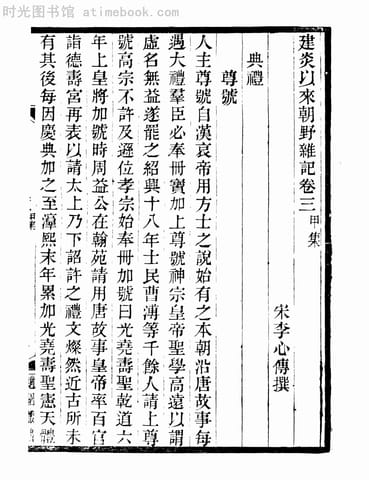 时光图书馆 atimebook.com
建炎以來朝野雜記卷三 甲集
宋李心傳撰
典禮
尊號
人主尊號自漢哀帝用方士之說始有之本朝沿唐故事每
遇大禮羣臣必奉冊寶加上尊號神宗皇帝聖學高遠以謂
虛名無益遂罷之紹興十八年士民曹溥等千餘人請上尊
號高宗不許及遜位孝宗始奉冊加號曰光堯壽聖乾道六
年上皇將加號時周益公在翰苑請用唐故事皇帝率百官
詣德壽宮再表以請太上乃下詔許之禮文燦然近古所未
有其後每因慶典加之至湻熙末年累加光堯壽聖憲天體